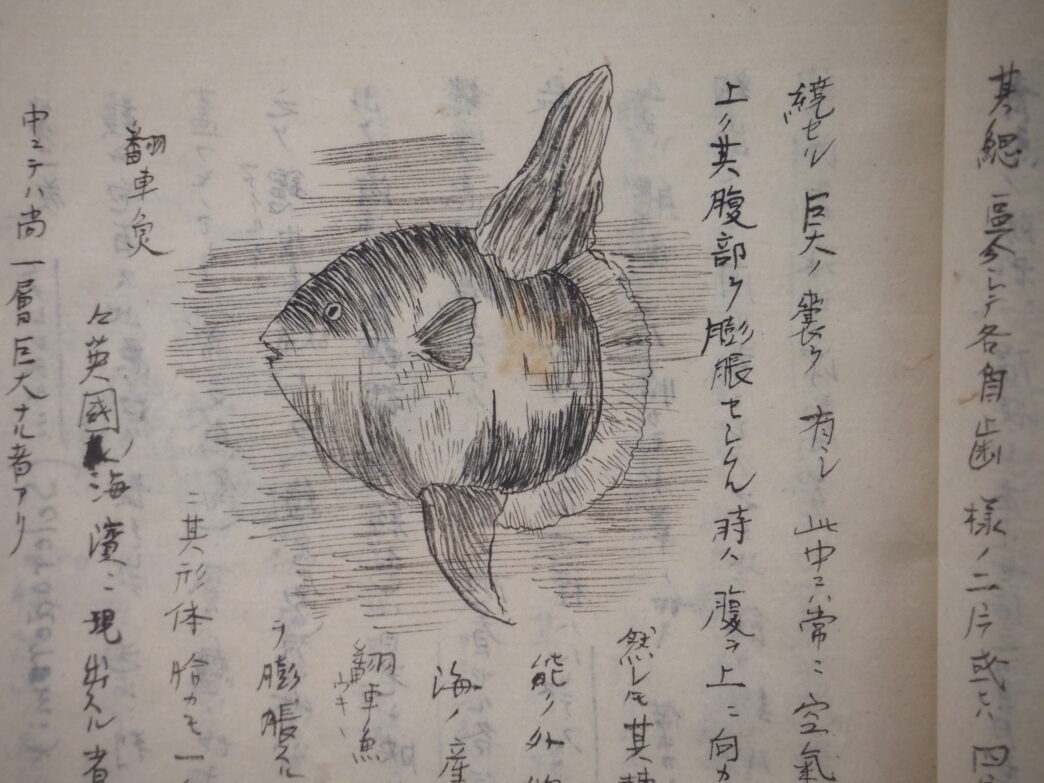 其鰓ノ區分シテ各自歯様ノ二片或ハ四
繞セル巨大ノ嚢ヲ有シ此中ニハ常ニ空氣
上ノ其腹部ヲ膨脹セシム時ハ腹ヲ上ニ向カ
然レ𪜈其
能ク外
海ノ産
翻車魚
ウキ
ヲ膨脹スル
ニ其形体恰カモ一
翻車魚
々英國ノ海濱ニ現出スル者
中ニテハ尚一層巨大ナル者アリ